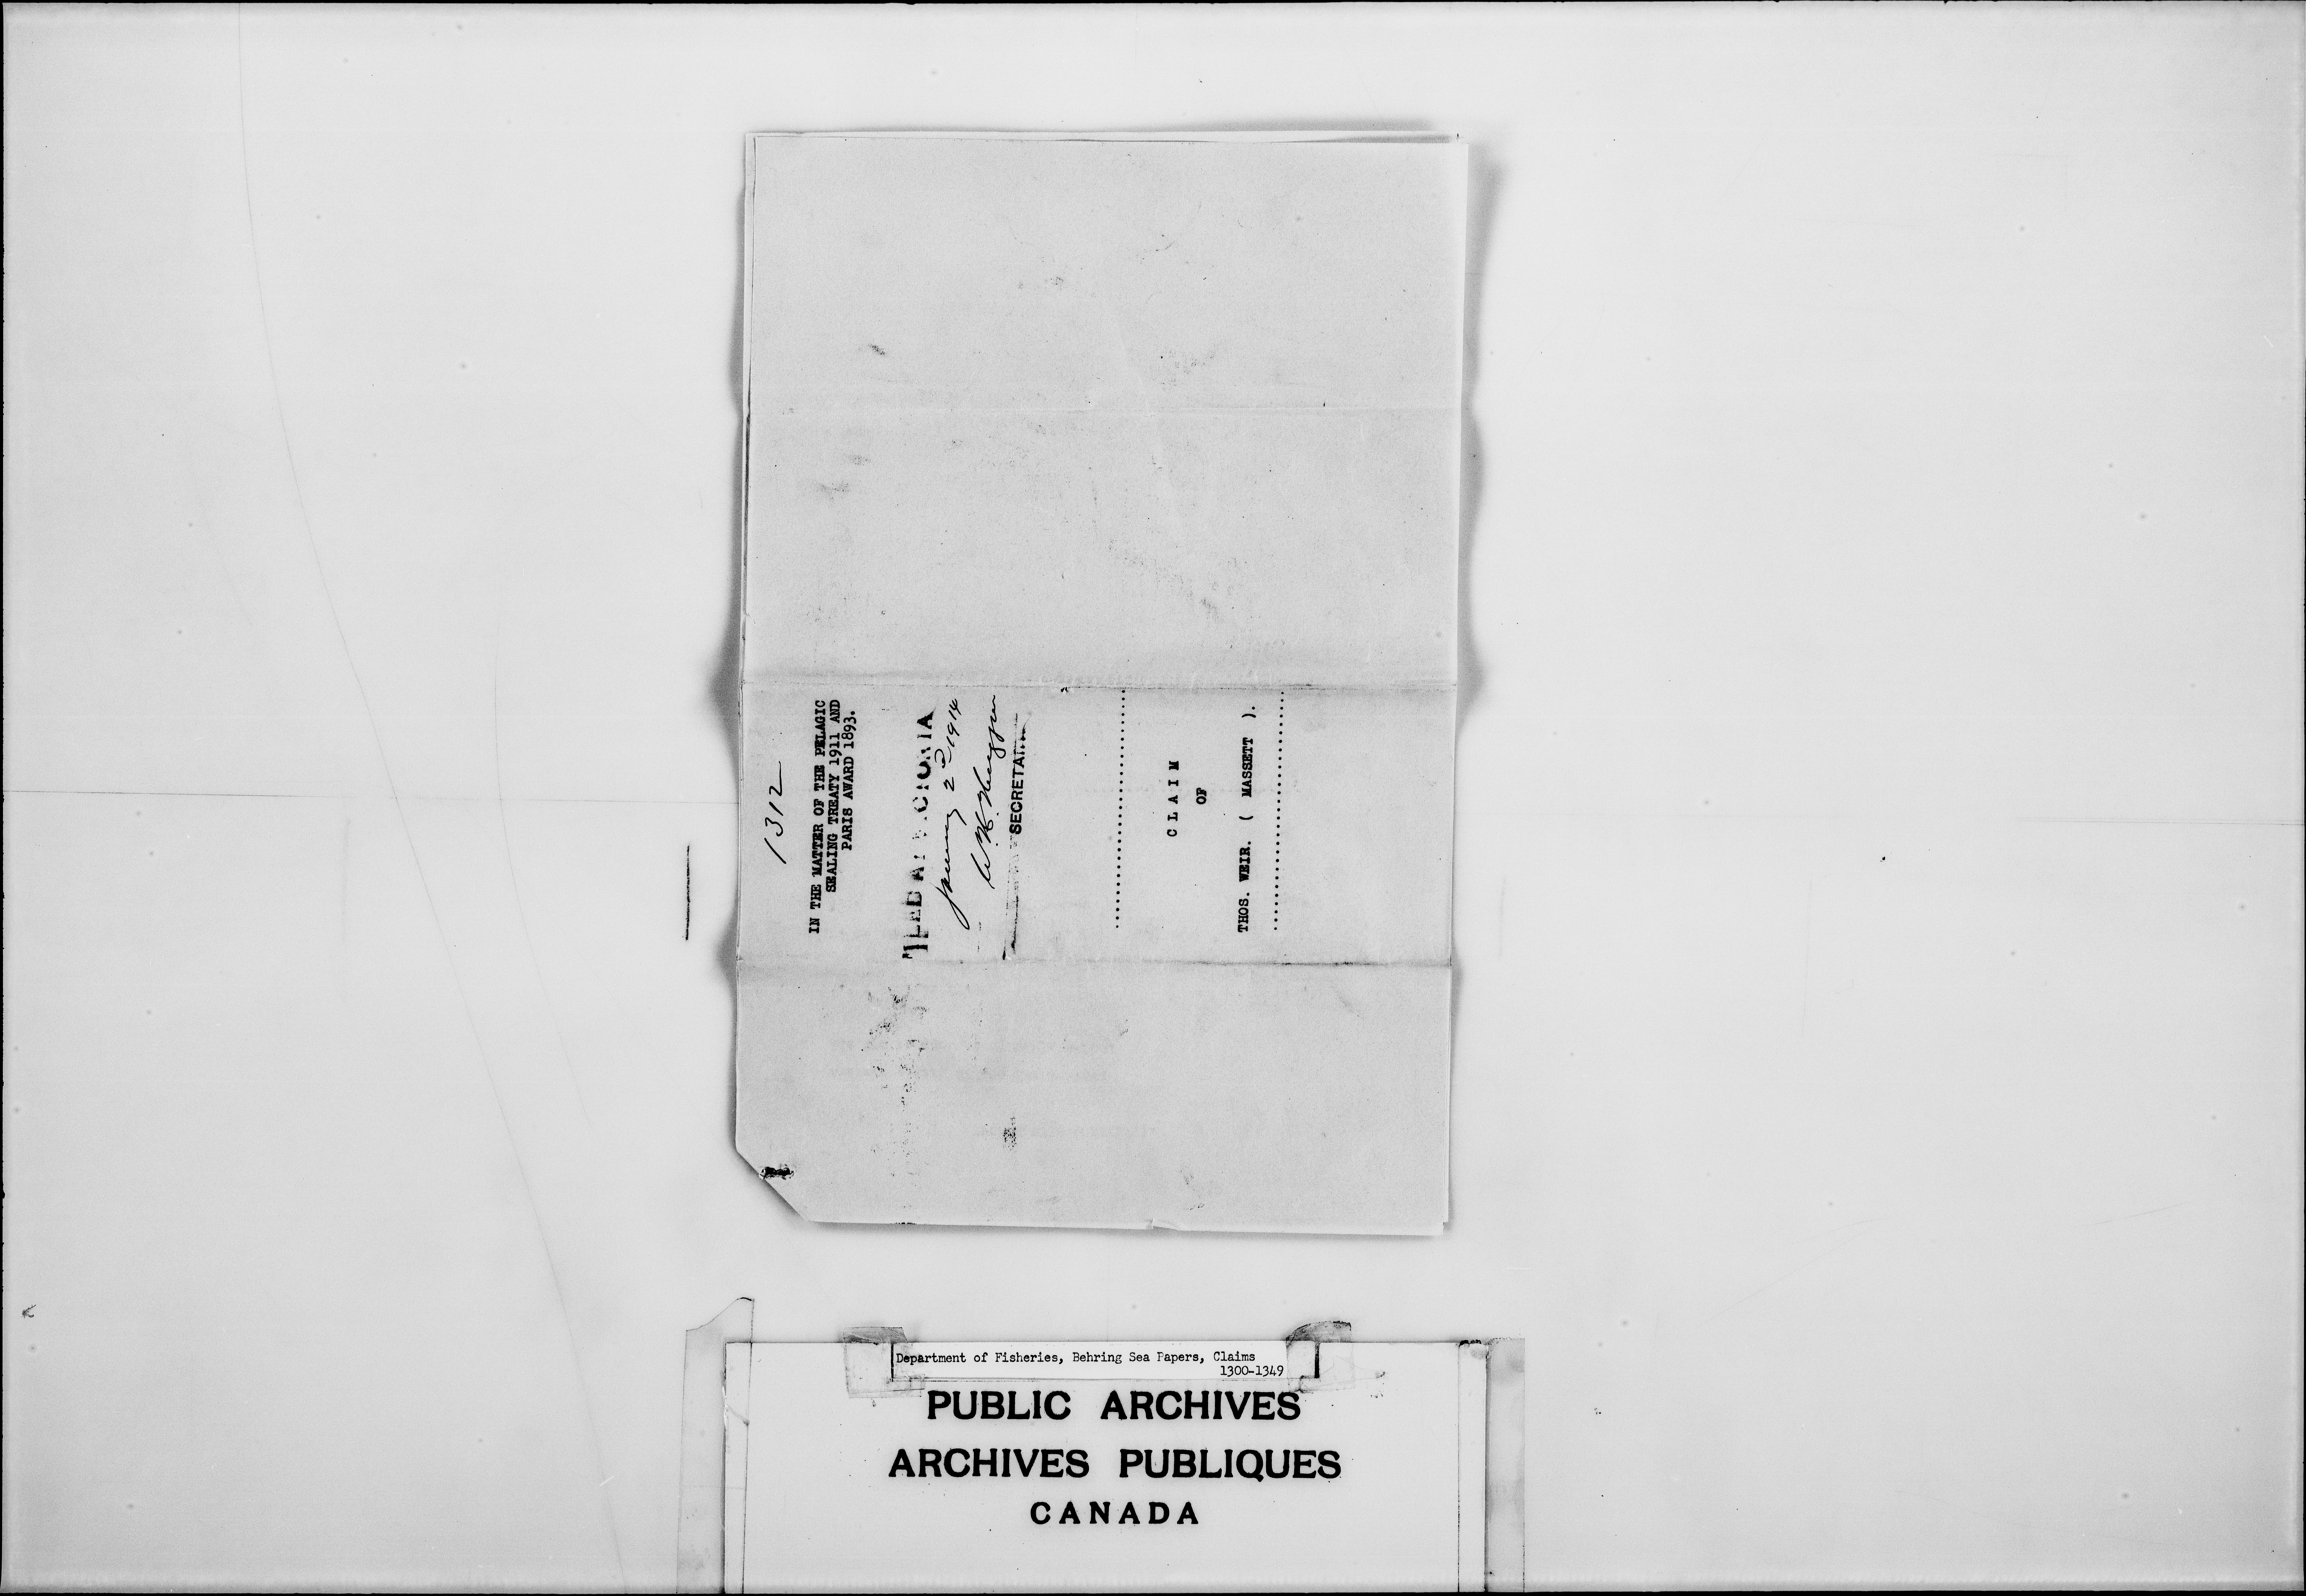 1312
IN THE MATTER OF THE PELAGIC
SEALING TREATY 1911 AND
PARIS AWARD 1893.
FILED AT VICTORIA
January 2nd 1914
SECRETARY
CLAIM
OF
THOS. WEIR. ( MASSETT ).
Department of Fisheries, Behring Sea Papers, Claims
1300-1349
PUBLIC ARCHIVES
ARCHIVES PUBLIQUES
CANADA